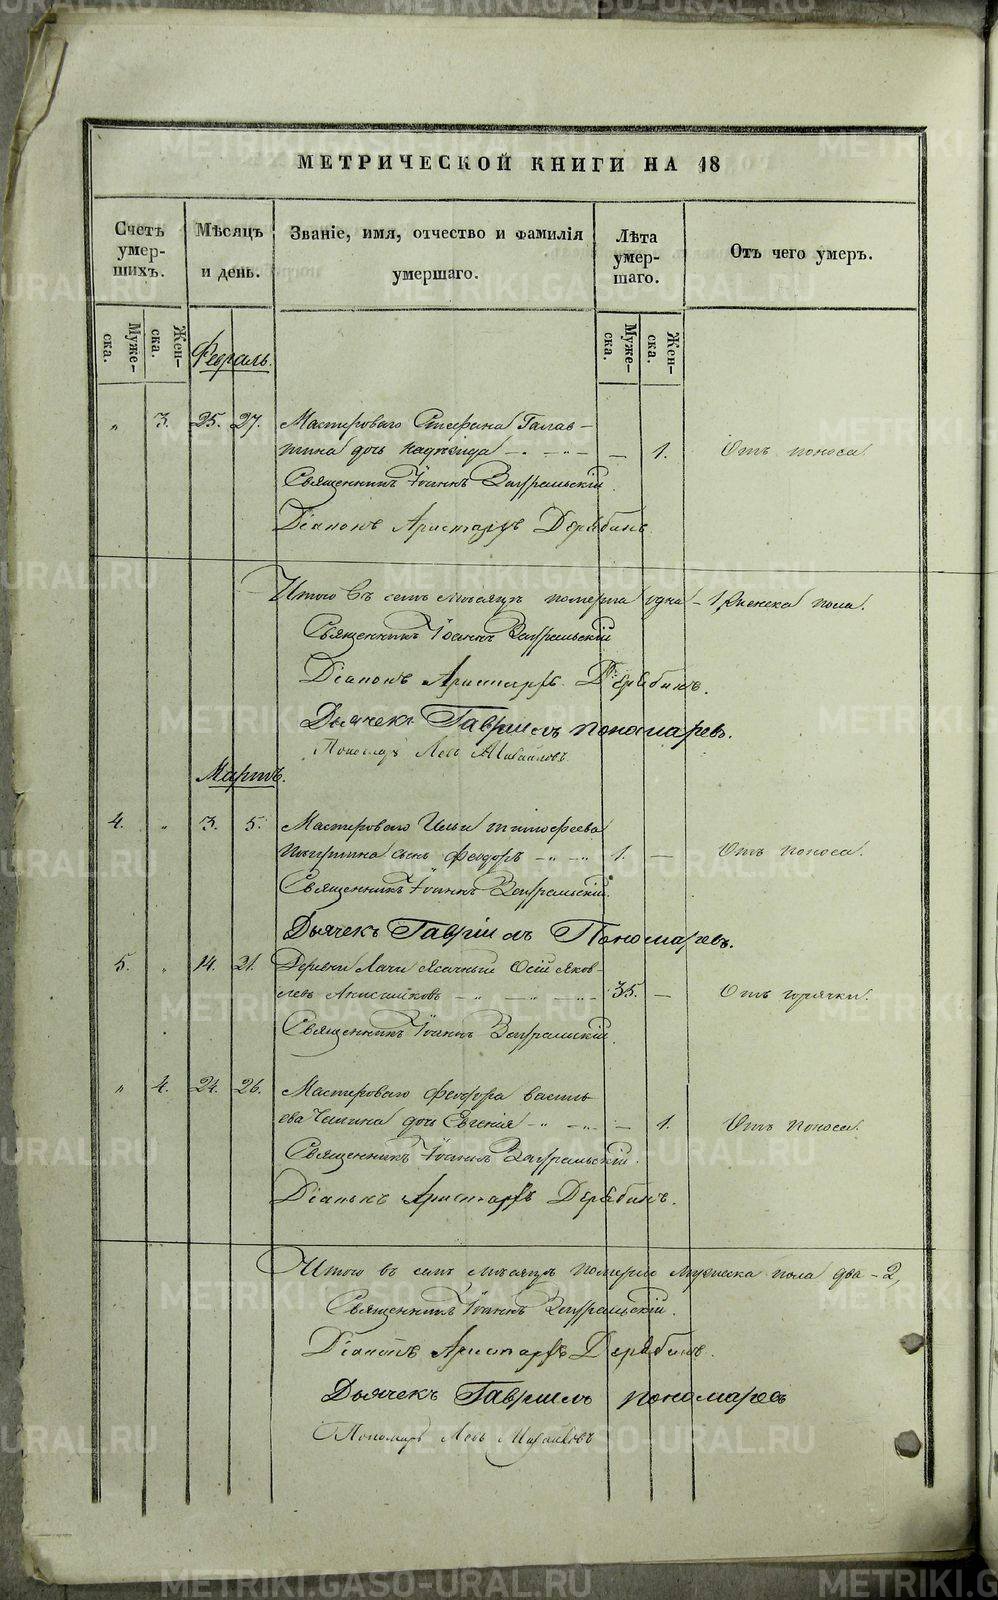 МЕТРИЧЕСКОЙ КНИГИ НА 18
Счетъ умер-шихъ.
Мѣсяцъ и день.
Званіе, имя, отчество и фамилія умершаго.
Лѣта умер-шаго.
Отъ чего умеръ.
Муже-ска.
Жен-ска.
Муже-ска.
Жен-ска.
Февраль.
" 3. 25. 27. Мастероваго Стефана Галав-
тина дочь Надежда — " — — 1. Отъ поноса.
Священникъ Іоаннъ Заушральскій
Діаконъ Аристархъ Дерябинъ
Итого въ семъ мѣсяцѣ померла одна – 1 женска пола.
Священникъ Іоаннъ
Діаконъ Аристархъ Дерябинъ.
Дьячекъ Гавріилъ Пономаревъ.
Пономарь Левъ Михайловъ
Мартъ.
4. " 3. 5. Мастероваго Ильи Тимофеева
сынъ Феодоръ — " — " 1. — Отъ поноса.
Священникъ Іоаннъ
Дьячекъ Гавріилъ Пономаревъ.
5. " 14. 21. Деревни Ясачный Осій Яков-
левъ — " — " — " — 35. — Отъ горячки.
Священникъ Іоаннъ
" 4. 24. 26. Мастероваго Феодора Василь
ева Чапина дочь Евгенія — " — " — 1. Отъ поноса.
Священникъ Іоаннъ
Діаконъ Аристархъ Дерябинъ.
Итого въ семъ мѣсяцѣ померло мужеска пола два – 2,
Священникъ Іоаннъ
Діаконъ Аристархъ Дерябинъ.
Дьячекъ Гавріилъ Пономаревъ
Пономарь Левъ Михайловъ
METRIKI.GASO-URAL.RU